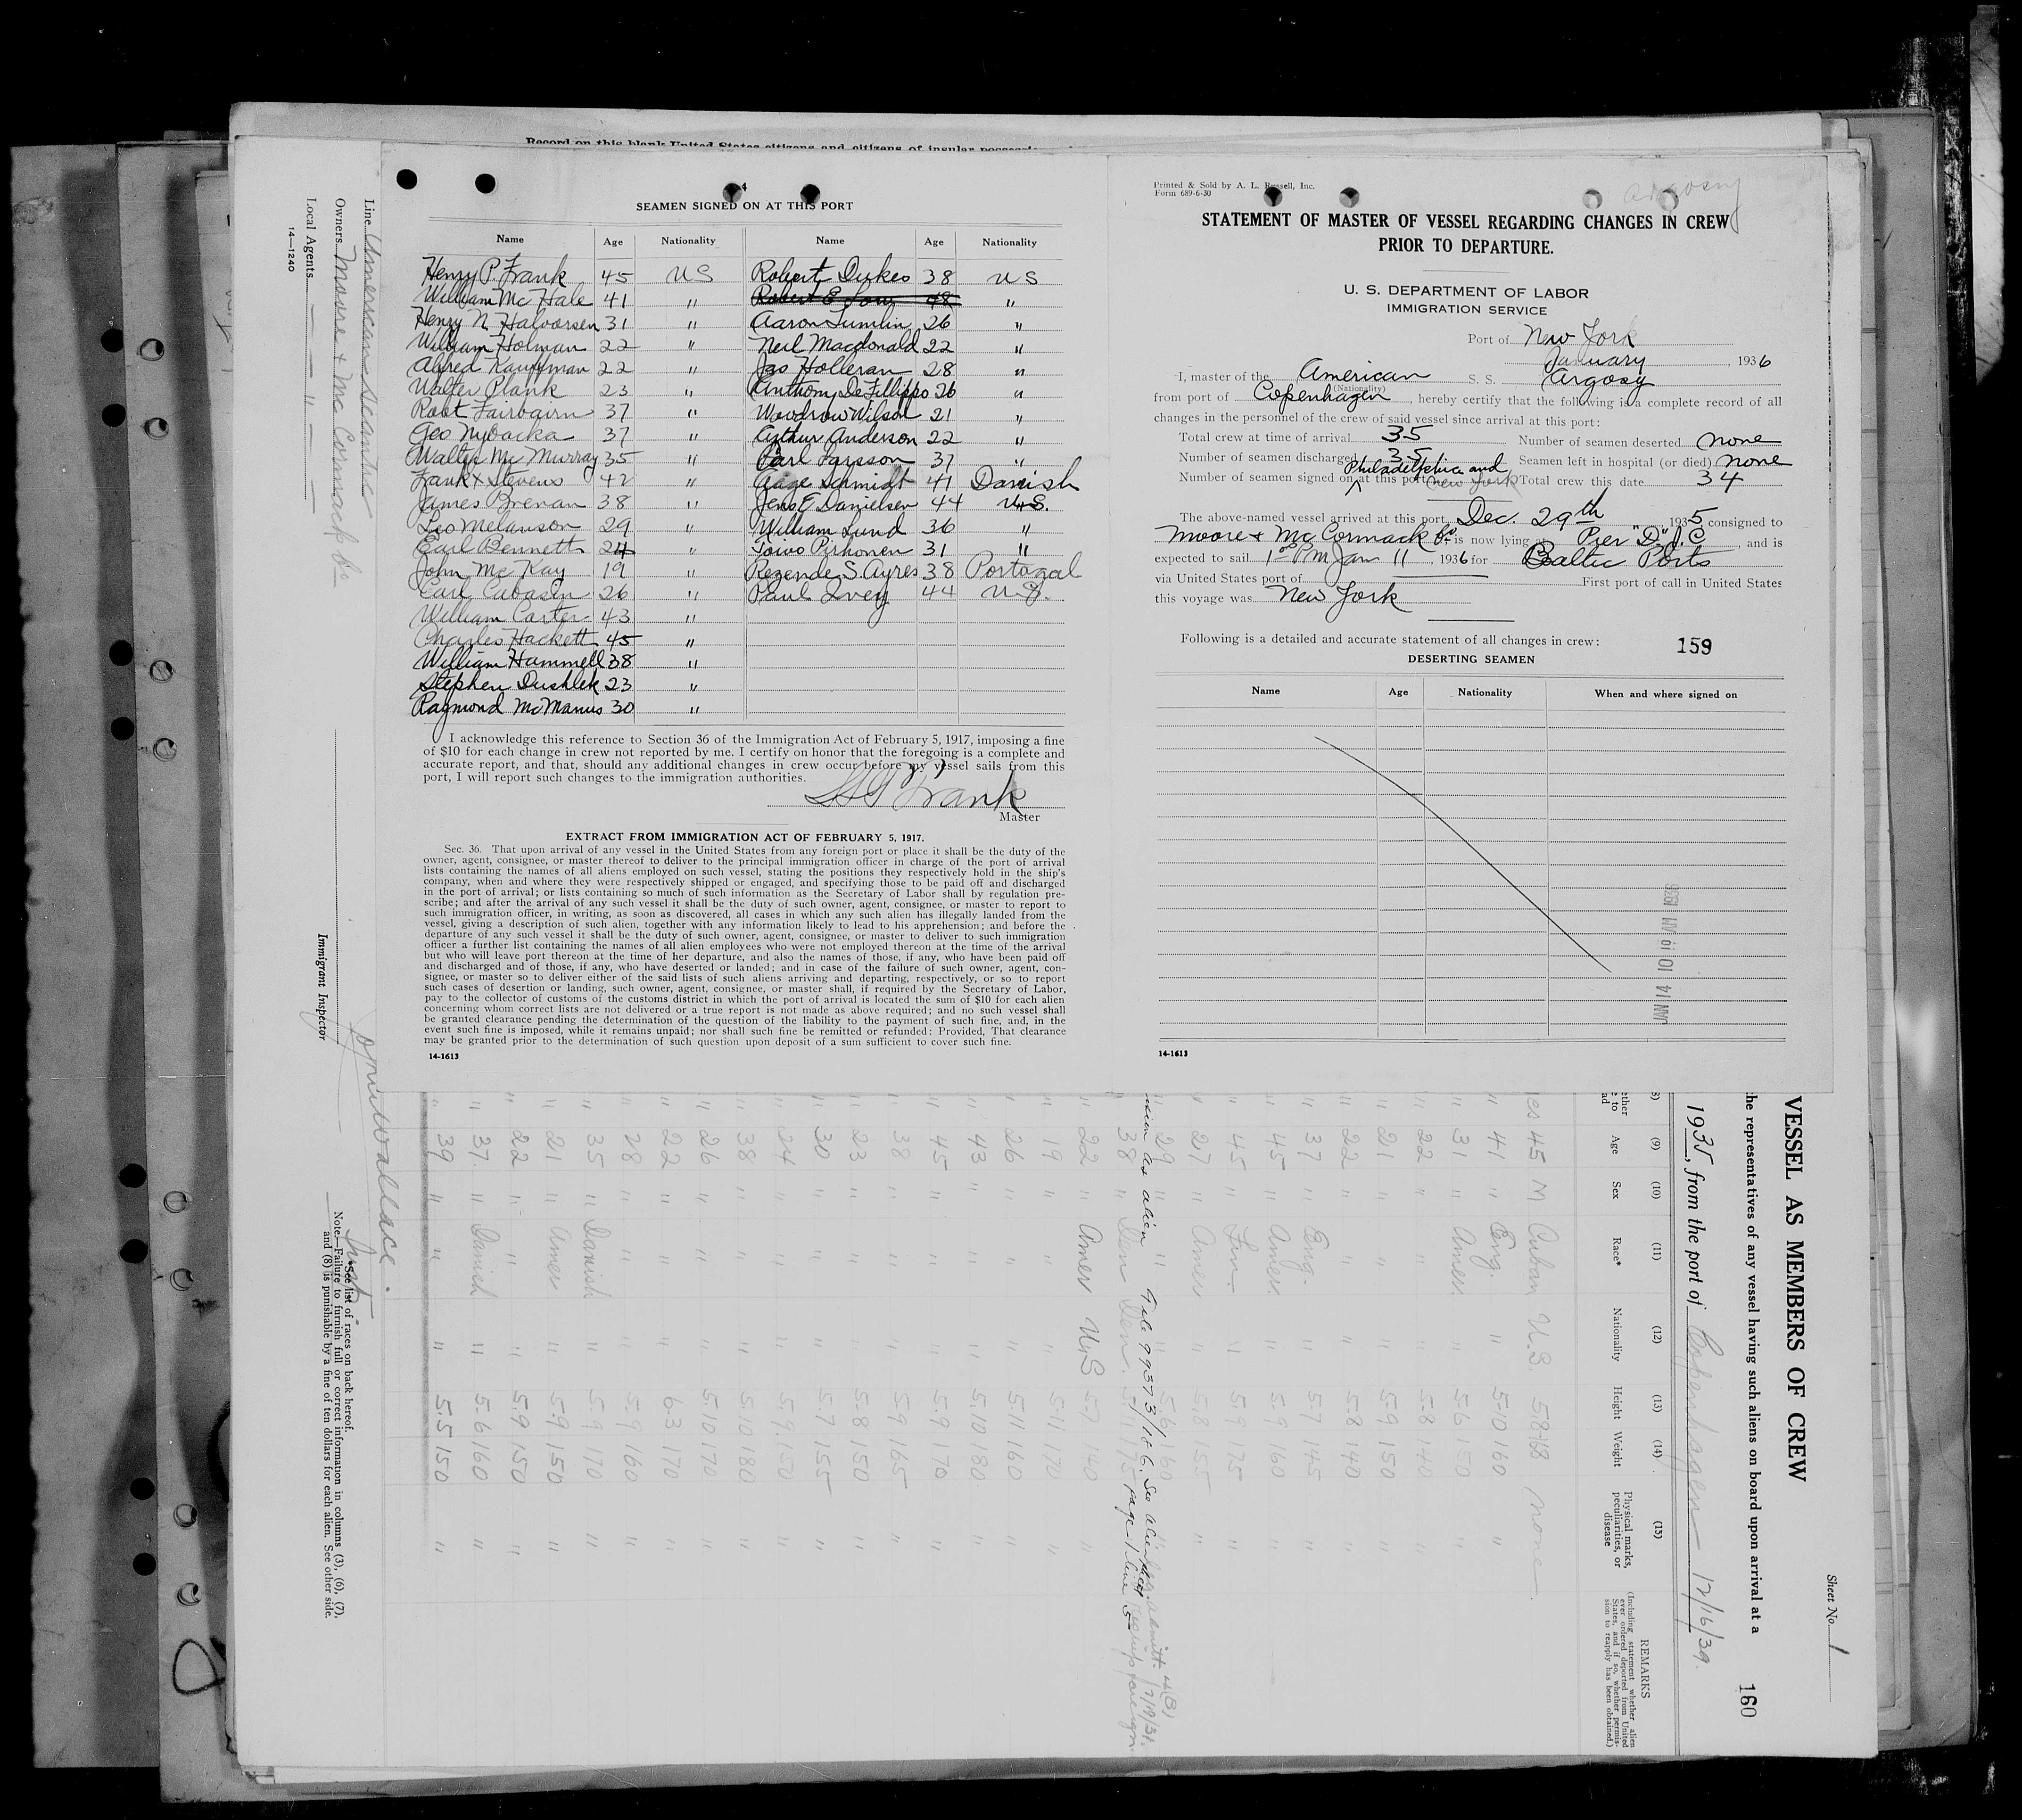 Record on this blank United States citizens and citizens of insular
4
SEAMEN SIGNED ON AT THIS PORT
Name Age Nationality Name Age Nationality
Henry P. Frank 45 US Robert Dukes 38 US
William Mc Hale 41 " Robert E 48 "
Henry N. Halvorsen 31 " Aaron Lumlin 26 "
William Holman 22 " Neil Macdonald 22 "
Alfred Kauffman 22 " Jas Holleran 28 "
Walter Plank 23 " Anthony DeFillippo 26 "
Robt Fairbairn 37 " Woodrow Wilson 21 "
Geo Nybacka 37 " Arthur Anderson 22 "
Walter Mc Murray 35 " Carl Larsson 37 "
Frank X Stevens 42 " Aage Schmidt 41 Danish
James Brenan 38 " Jens E Danielsen 44 U.S.
Leo Melanson 29 " William Lund 36 "
Earl Bennett 24 " Toivo Pirhonen 31 "
John Mc Kay 19 " Rezende S Ayres 38 Portogal
Carl Cabasin 26 " Paul Ivey 44 U.S.
William Carter 43 "
Charles Hackett 45 "
William Hammell 38 "
Stephen Dushlek 23 "
Raymond McManus 30 "
I acknowledge this reference to Section 36 of the Immigration Act of February 5, 1917, imposing a fine
of $10 for each change in crew not reported by me. I certify on honor that the foregoing is a complete and
accurate report, and that, should any additional changes in crew occur before my vessel sails from this
port, I will report such changes to the immigration authorities.
H P Frank
Master
EXTRACT FROM IMMIGRATION ACT OF FEBRUARY 5, 1917.
Sec. 36. That upon arrival of any vessel in the United States from any foreign port or place it shall be the duty of the
owner, agent, consignee, or master thereof to deliver to the principal immigration officer in charge of the port of arrival
lists containing the names of all aliens employed on such vessel, stating the positions they respectively hold in the ship's
company, when and where they were respectively shipped or engaged, and specifying those to be paid off and discharged
in the port of arrival; or lists containing so much of such information as the Secretary of Labor shall by regulation pre-
scribe; and after the arrival of any such vessel it shall be the duty of such owner, agent, consignee, or master to report to
such immigration officer, in writing, as soon as discovered, all cases in which any such alien has illegally landed from the
vessel, giving a description of such alien, together with any information likely to lead to his apprehension; and before the
departure of any such vessel it shall be the duty of such owner, agent, consignee, or master to deliver to such immigration
officer a further list containing the names of all alien employees who were not employed thereon at the time of the arrival
but who will leave port thereon at the time of her departure, and also the names of those, if any, who have been paid off
and discharged and of those, if any, who have deserted or landed; and in case of the failure of such owner, agent, con-
signee, or master so to deliver either of the said lists of such aliens arriving and departing, respectively, or so to report
such cases of desertion or landing, such owner, agent, consignee, or master shall, if required by the Secretary of Labor,
pay to the collector of customs of the customs district in which the port of arrival is located the sum of $10 for each alien
concerning whom correct lists are not delivered or a true report is not made as above required; and no such vessel shall
be granted clearance pending the determination of the question of the liability to the payment of such fine, and, in the
event such fine is imposed, while it remains unpaid; nor shall such fine be remitted or refunded: Provided, That clearance
may be granted prior to the determination of such question upon deposit of a sum sufficient to cover such fine.
14-1613
Printed & Sold by A. L. Russell, Inc.
Form 689-6-30
Argosy
STATEMENT OF MASTER OF VESSEL REGARDING CHANGES IN CREW
PRIOR TO DEPARTURE.
U. S. DEPARTMENT OF LABOR
IMMIGRATION SERVICE
Port of New York
January, 1936
I, master of the American S. S. Argosy
(Nationality)
from port of Copenhagen, hereby certify that the following is a complete record of all
changes in the personnel of the crew of said vessel since arrival at this port:
Total crew at time of arrival 35 Number of seamen deserted none
Number of seamen discharged 35 Seamen left in hospital (or died) none
Philadelphia and
Number of seamen signed on at this port New York Total crew this date 34
The above-named vessel arrived at this port Dec. 29th 1935 consigned to
Moore & McCormack Co. is now lying at Pier "D" J.C, and is
expected to sail 1 00 PM Jan 11, 1936 for Baltic Ports
via United States port of First port of call in United States
this voyage was New York
Following is a detailed and accurate statement of all changes in crew: 159
DESERTING SEAMEN
Name Age Nationality When and where signed on
JAN 14 10 10 AM 1936
14-1613
Line American Scantic
Owners Moore & Mc Cormack Co
Local Agents — " —
14—1240
Immigrant Inspector
*See list of races on back hereof.
Note.—Failure to furnish full or correct information in columns (3), (6), (7),
and (8) is punishable by a fine of ten dollars for each alien. See other side.
Sheet No. 1
VESSEL AS MEMBERS OF CREW
160
the representatives of any vessel having such aliens on board upon arrival at a
1935, from the port of Copenhagen 12/16/39.
(9) (10) (11) (12) (13) (14) (15)
Age Sex Race* Nationality Height Weight Physical marks, peculiarities, or disease
REMARKS
(Including statement whether alien
ever ordered deported from United
States, and if so, whether permis-
sion to reapply has been obtained.)
45 M Cuban U.S 58 none
41 " Eng. " 5.10 160 "
31 " Amer. " 5.6 150 "
22 " " " 5.8 140
21 " " " 5.9 150
22 " " " 5.8 140
37 " Eng. " 5.7 145 "
45 " Amer. " 5.9 160 "
45 " Fin. " 5.9 175 "
27 " Amer " 5.8 155 "
29 " " " 5.6 160
as alien File 99573/186. See page 1 line 5
38 " Den Den.
22 " Amer U.S 5.7 140 "
19 " " " 5.11 170 "
26 " " " 5.11 160 "
43 " " " 5.10 180 "
45 " " " 5.9 170 "
38 " " " 5.9 165 "
23 " " " 5.8 150 "
30 " " " 5.7 155 "
24 " " " 5.9 150 "
38 " " " 5.10 180 "
26 " " " 5.10 170 "
22 " " " 6.3 170 "
28 " " " 5.9 160 "
35 " Danish " 5.9 170 "
21 " Amer " 5.9 150 "
22 " " " 5.9 150 "
37 " Danish " 5.6 160 "
39 " " " 5.5 150 "